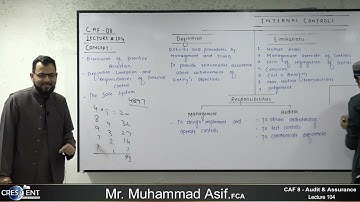 CAF-08
LECTURE # 104
CONCEPT:
Discussion of practice Question
Definition, Limitation and Responsibilities of Internal Control
The Sale System
INTERNAL CONTROLS
Definition
Policies and procedures by Management and TCWG
To provide reasonable assurance about achievement of Entity's objectives
LIMITATIONS
1 Human error
2 Management override of controls
3 Lack of segregation of duties
4 Collusion
5 Cost > Benefits
6 non-routine transactions judgement
Responsibilities
Management
- To design, implement and operate controls
Auditor
- To obtain understanding
- To test controls
- To communicate deficiencies
CRESCENT
Mr. Muhammad Asif,FCA
CAF 8 - Audit & Assurance
Lecture 104